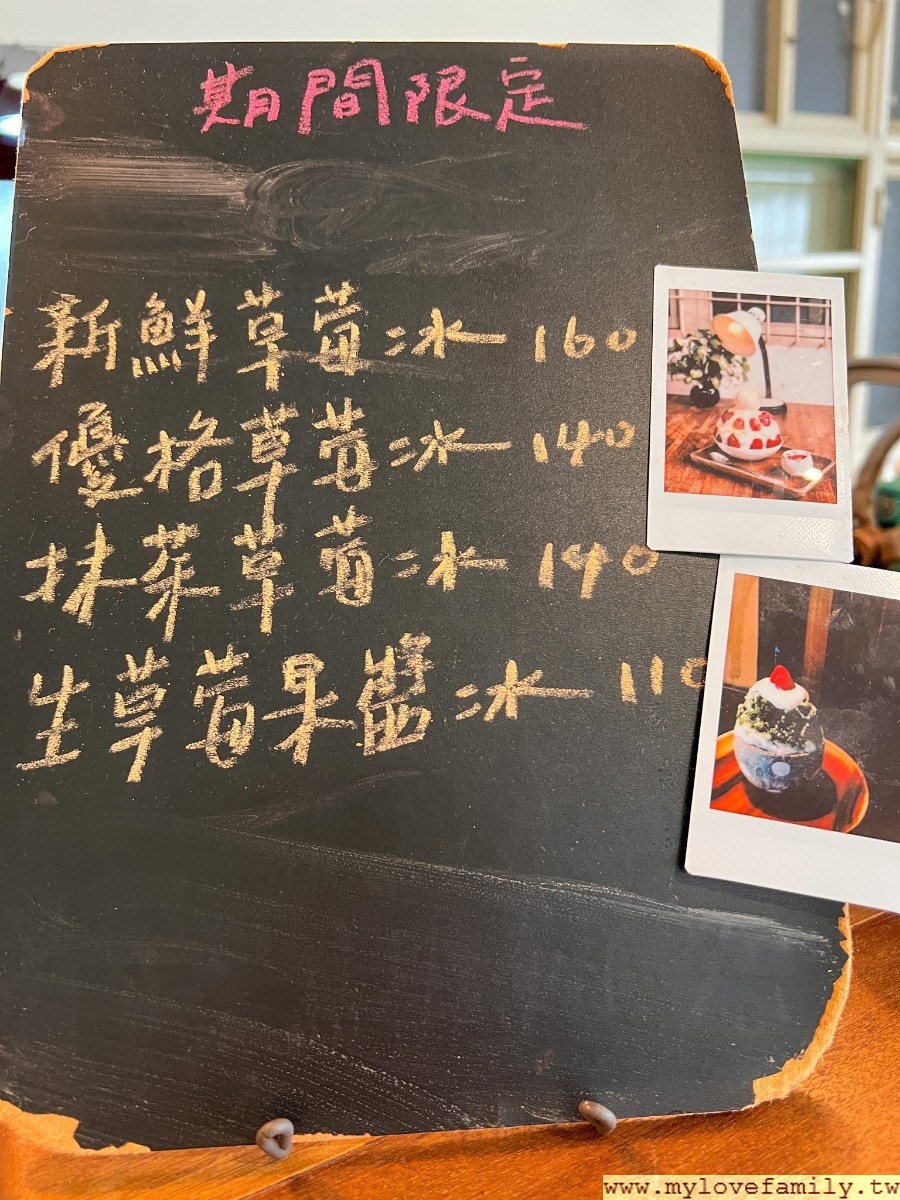 期間限定
新鮮草莓冰 160
優格草莓冰 140
抹茶草莓冰 140
生草莓果醬冰 110
www.mylovefamily.tw